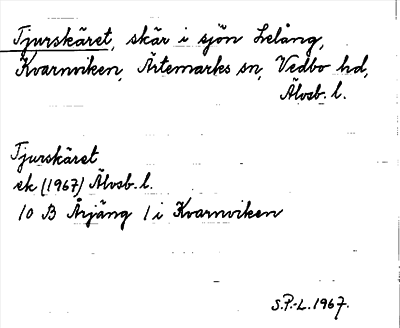 Tjurskäret, skär i sjön Lelång,
Kvarnviken, Ärtemarks sn, Vedbo hd,
Älvsb. l.
Tjurskäret
ek (1967) Älvsb. l.
10 B Årjäng 1 i Kvarnviken
S.P.-L. 1967.